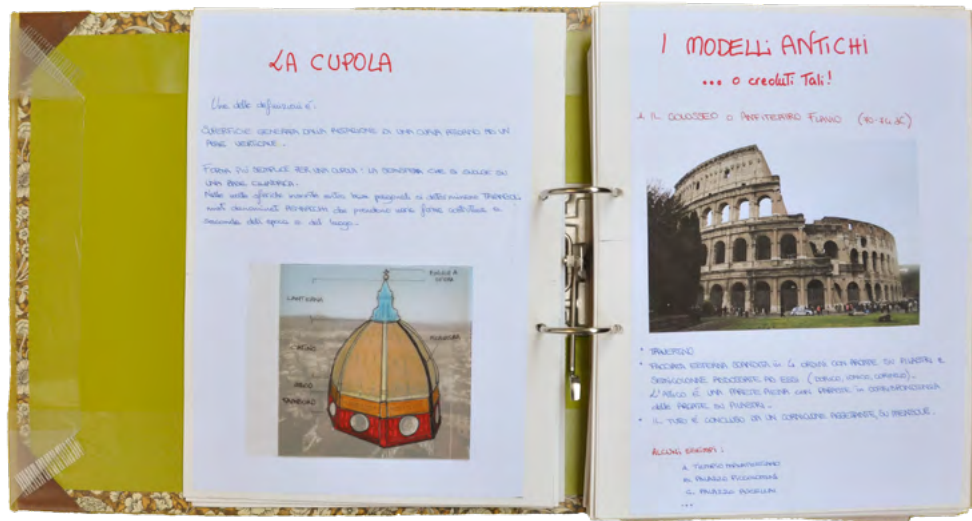 LA CUPOLA
Una delle definizioni è:
SUPERFICIE GENERATA DALLA ROTAZIONE DI UNA CURVA ATTORNO AD UN
ASSE VERTICALE.
FORMA PIÙ SEMPLICE PER UNA CUPOLA: LA SEMISFERA CHE SI CHIUDE SU
UNA BASE
Nelle volte sferiche su base si determinano
denominati PENNACCHI che prendono varie forme a
seconda dell' epoca e del luogo.
LANTERNA
TAMBURO
I MODELLI ANTICHI
... o creduti Tali!
1. IL COLOSSEO O ANFITEATRO FLAVIO
• TRAVERTINO
• FACCIATA ESTERNA SCANDITA in 4 ORDINI CON ARCATE SU PILASTRI E
SEMICOLONNE ADDOSSATE AD ESSI (DORICO, IONICO, CORINZIO).
L'ATTICO È UNA PARETE PIENA CON PARASTE in CORRISPONDENZA
delle ARCATE SU PILASTRI.
• IL TUTTO È CONCLUSO DA UN CORNICIONE AGGETTANTE, SU MENSOLE.
ALCUNI ESEMPI:
A. TEATRO
B. PALAZZO PICCOLOMINI
C. PALAZZO RUCELLAI
...